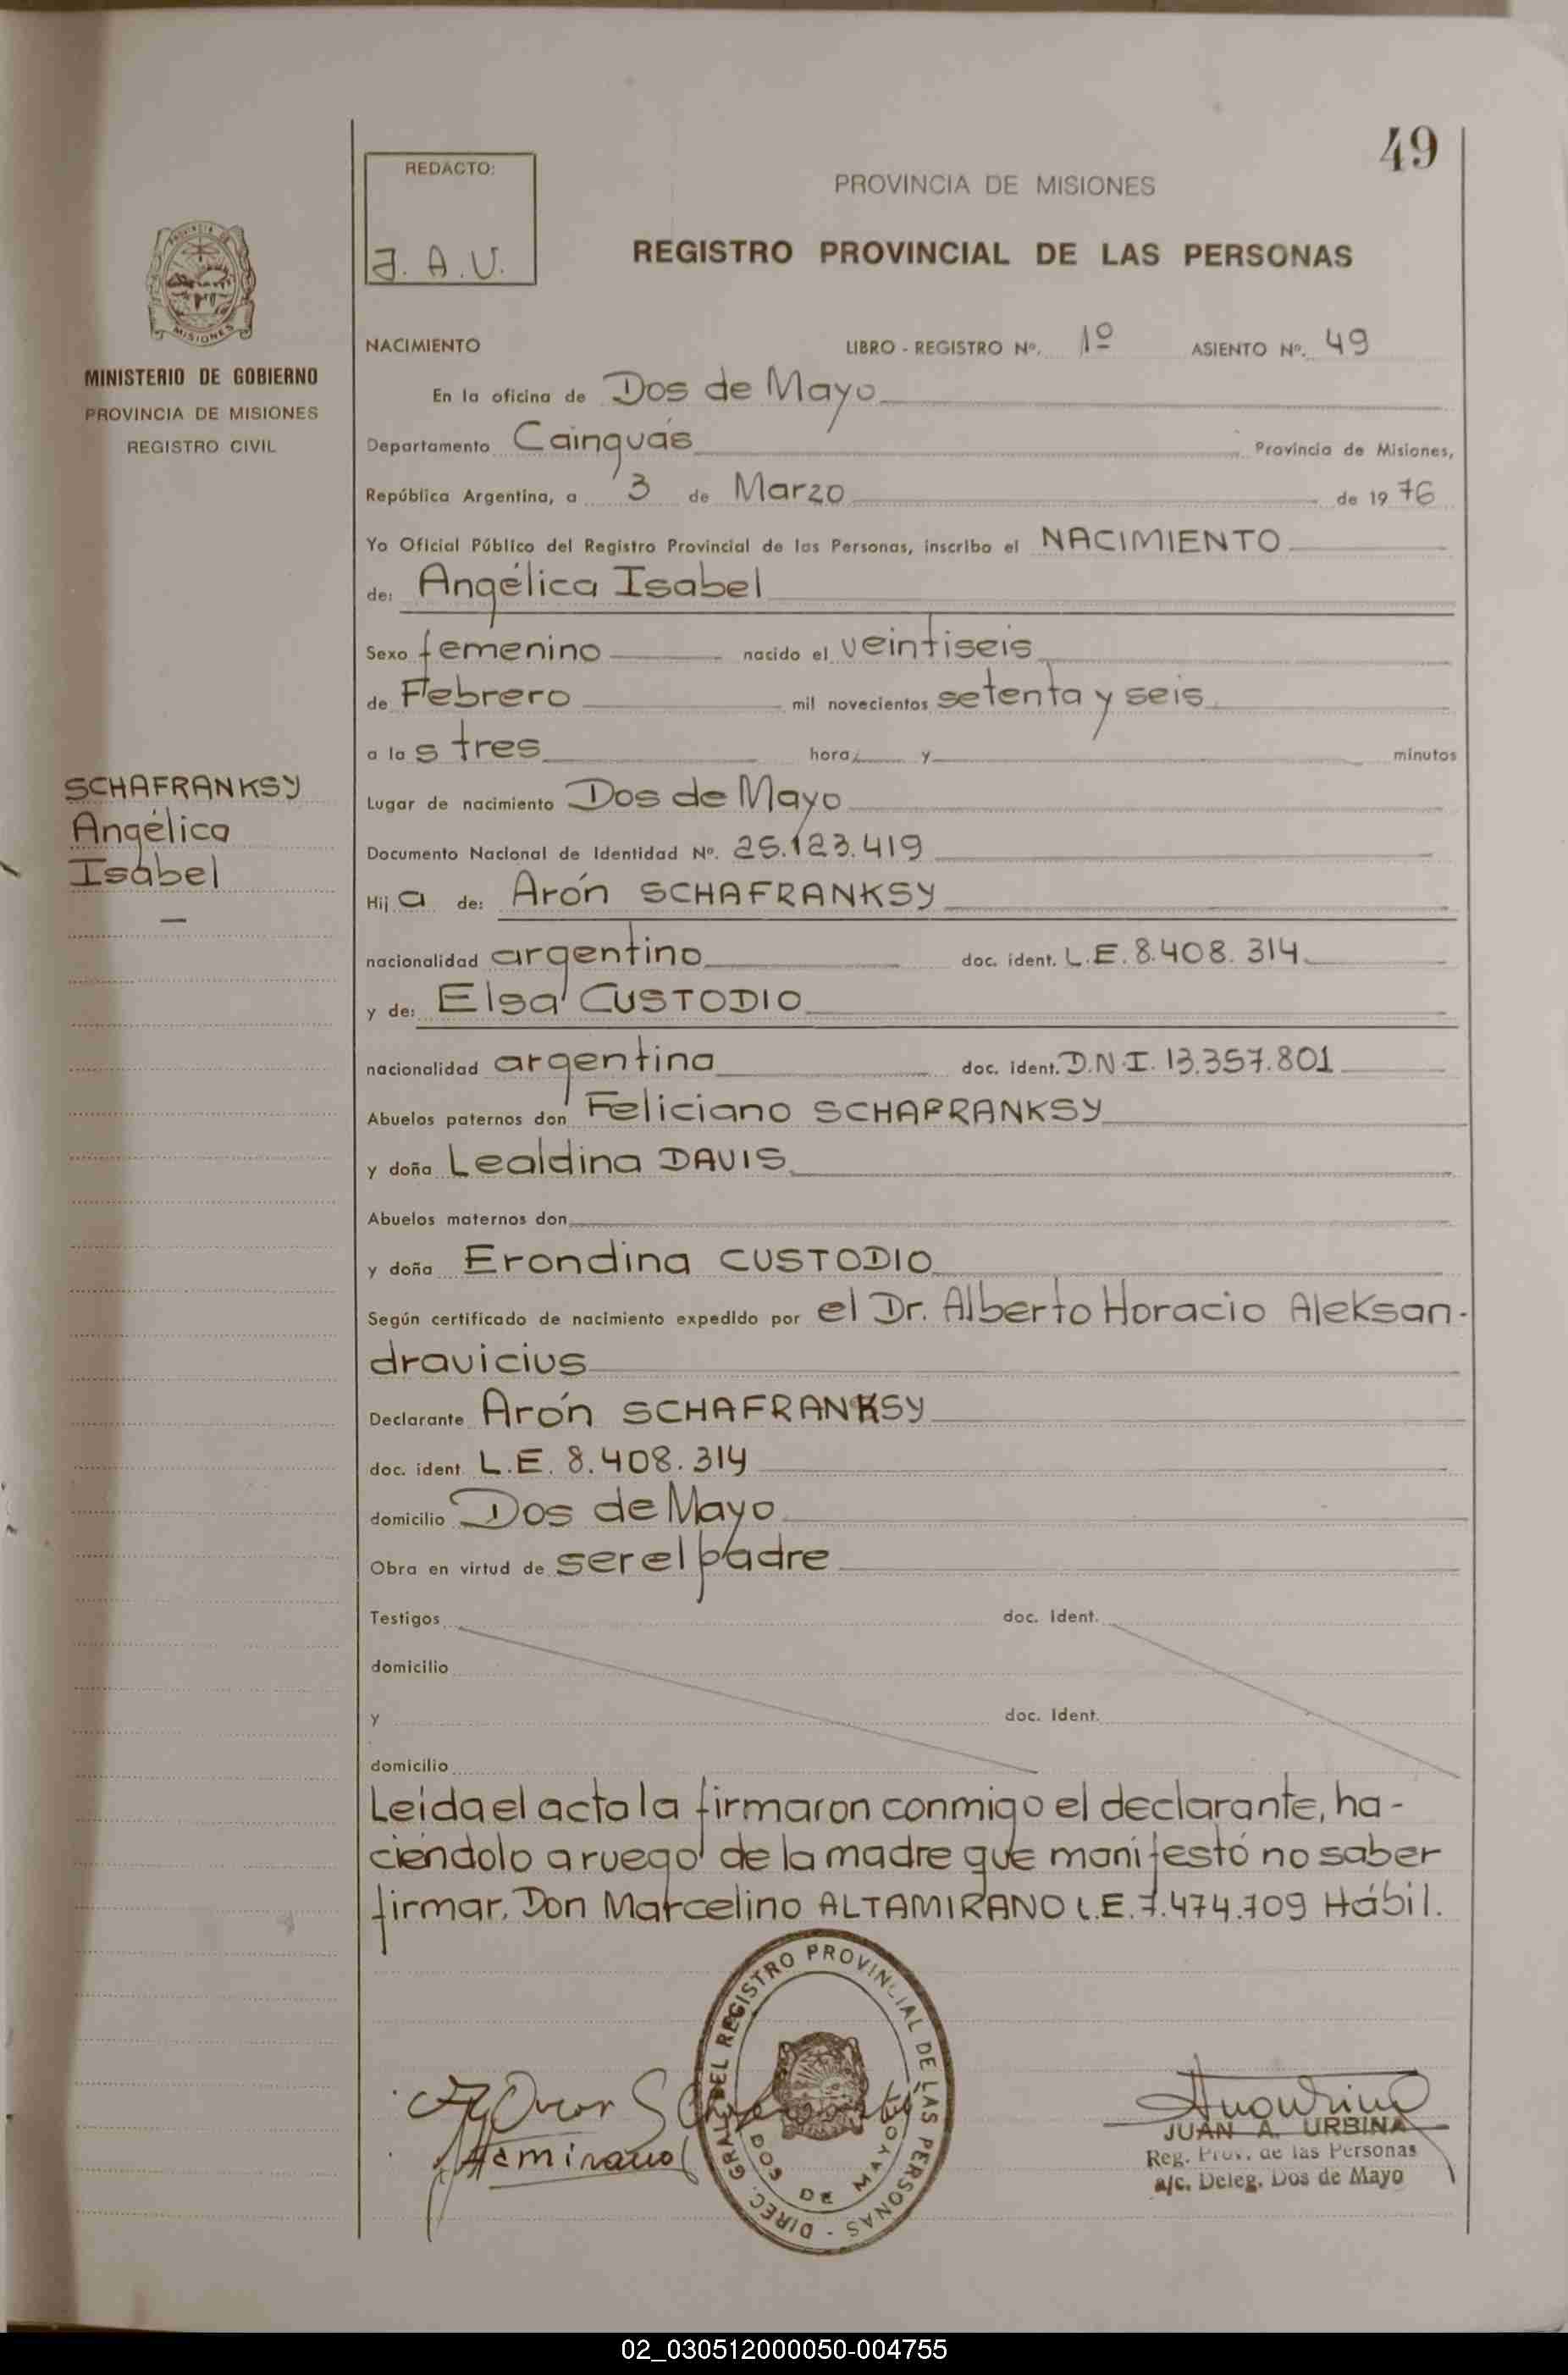 49
REDACTO:
J. A. U.
PROVINCIA DE MISIONES
REGISTRO PROVINCIAL DE LAS PERSONAS
MISIONES
MINISTERIO DE GOBIERNO
PROVINCIA DE MISIONES
REGISTRO CIVIL
NACIMIENTO LIBRO - REGISTRO Nº. 1º ASIENTO Nº. 49
En la oficina de Dos de Mayo
Departamento Cainguás Provincia de Misiones,
República Argentina, a 3 de Marzo de 1976
Yo Oficial Público del Registro Provincial de las Personas, inscribo el NACIMIENTO
de: Angélica Isabel
Sexo femenino nacido el veintiseis
de Febrero mil novecientos setenta y seis
a las tres hora y minutos
Lugar de nacimiento Dos de Mayo
Documento Nacional de Identidad Nº. 25.123.419
SCHAFRANKSY
Angélica
Isabel
Hija de: Arón SCHAFRANKSY
nacionalidad argentino doc. ident. L.E. 8.408.314
y de: Elsa CUSTODIO
nacionalidad argentina doc. ident. D.N.I. 13.357.801
Abuelos paternos don Feliciano SCHAFRANKSY
y doña Lealdina DAVIS
Abuelos maternos don
y doña Erondina CUSTODIO
Según certificado de nacimiento expedido por el Dr. Alberto Horacio Aleksan-
dravicius
Declarante Arón SCHAFRANKSY
doc. ident. L.E. 8.408.314
domicilio Dos de Mayo
Obra en virtud de ser el padre
Testigos doc. Ident.
domicilio
y doc. Ident.
domicilio
Leida el acta la firmaron conmigo el declarante, ha-
ciéndolo a ruego de la madre que manifestó no saber
firmar, Don Marcelino ALTAMIRANO L.E. 7.474.709 Hábil.
DIREC. GRAL. DEL REGISTRO PROVINCIAL DE LAS PERSONAS -
DOS DE MAYO
JUAN A. URBINA
Reg. Prov. de las Personas
a/c. Deleg. Dos de Mayo
02_030512000050-004755